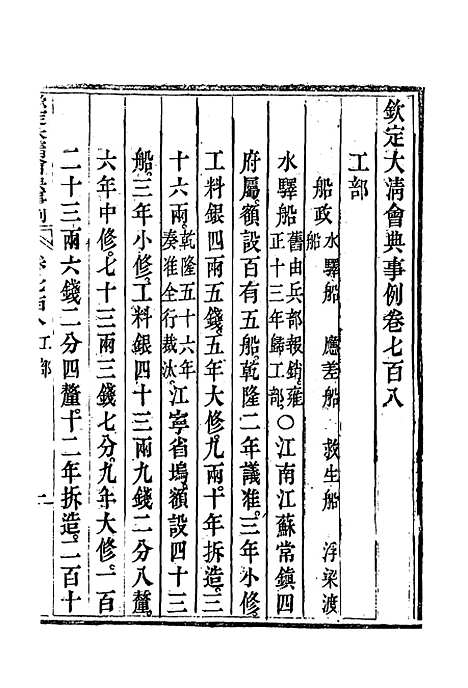 欽定大清會典事例卷七百八
工部
船政水驛船 應差船 救生船 浮梁渡船
水驛船舊由兵部報銷雍正十三年歸工部○江南江蘇常鎮四
府屬額設百有五船乾隆二年議准三年小修
工料銀四兩五錢五年大修九兩十年拆造三
十六兩乾隆五十六年奏准全行裁汰江寧省塢額設四十三
船三年小修工料銀四十三兩九錢二分八釐
六年中修七十三兩三錢七分九年大修一百
二十三兩六錢二分四釐十二年拆造二百十
欽定大清會典事例 卷七百八 工部 一